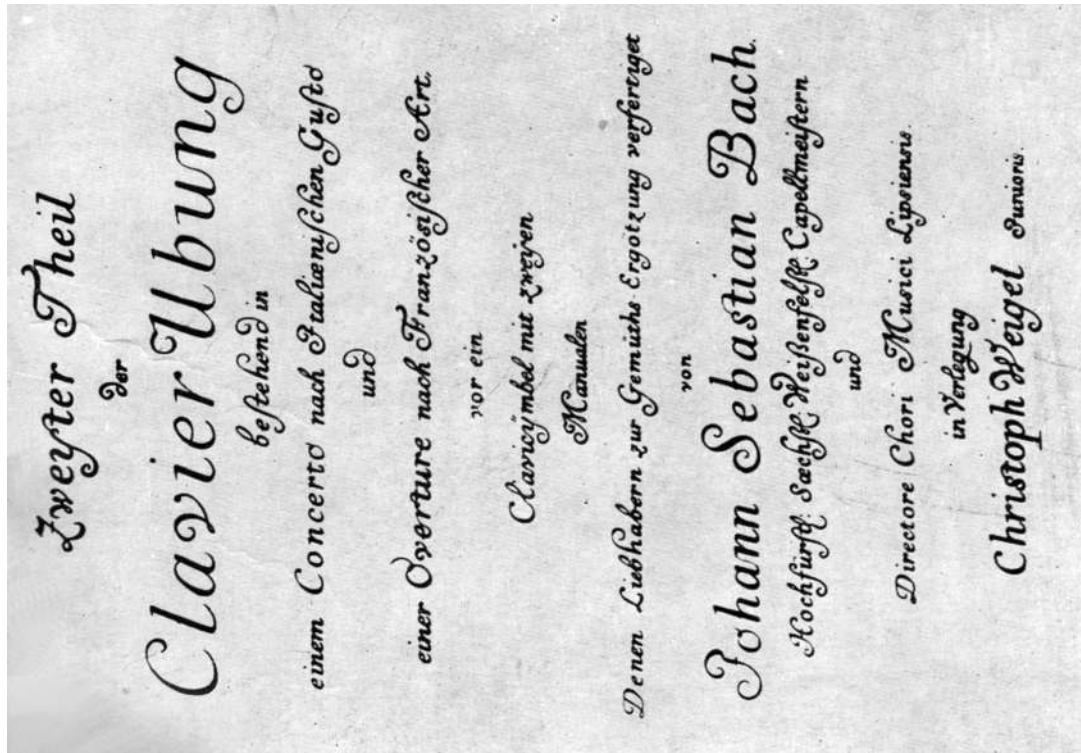 Zweyter Theil
der
Clavier Ubung
bestehend in
einem Concerto nach Italiænischen Gusto
und
einer Overture nach Französischer Art,
vor ein
Clavicÿmbel mit zweyen
Manualen
Denen Liebhabern zur Gemüths-Ergötzung verfertiget
von
Johann Sebastian Bach.
Hochfürstl: Sæchsl: Weißenfelsl: Capellmeistern
und
Directore Chori Musici Lipsiensis.
in Verlegung
Christoph Weigel Junioris.